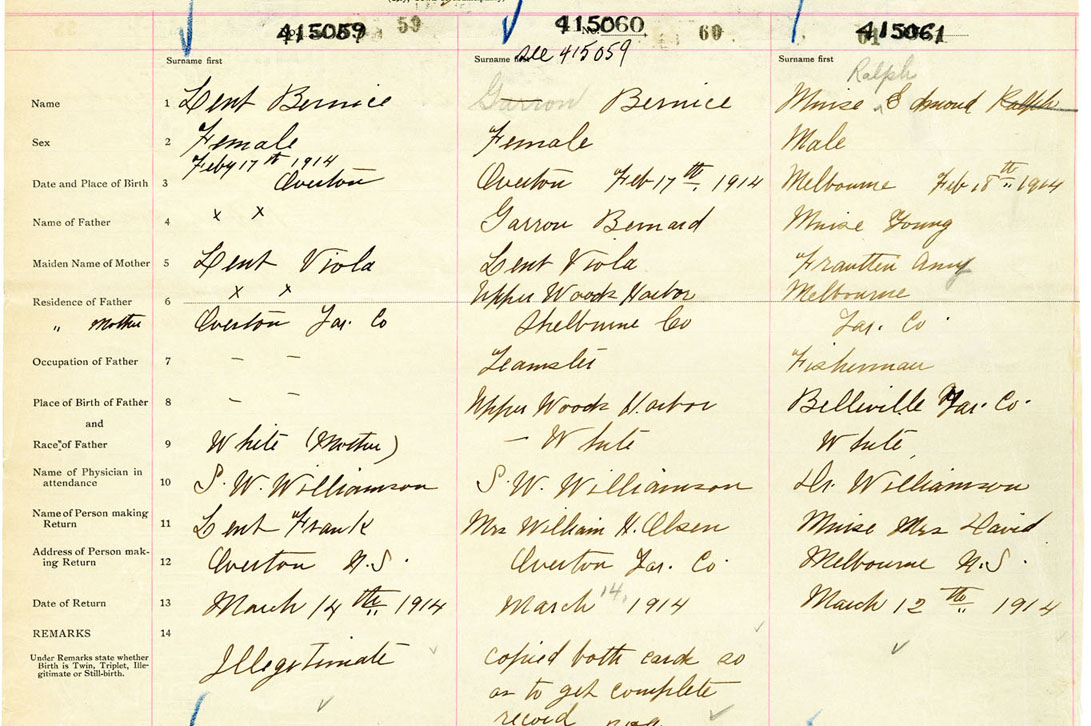 415059 59 415060 60 415061 61
No.
see 415059
Surname first Surname first Surname first
Ralph
Name 1 Lent Bernice Garron Bernice Muise Edmond Ralph
Sex 2 Female Female Male
Feby 17th 1914
Date and Place of Birth 3 Overton Overton Feb 17th, 1914 Melbourne Feb 18th 1914
Name of Father 4 x x Garron Bernard Muise Young
Maiden Name of Mother 5 Lent Viola Lent Viola Frautten Amy
Residence of Father 6 x x Upper Woods Harbor Melbourne
" Mother Overton Yar. Co Shelburne Co Yar. Co.
Occupation of Father 7 – – Teamster Fisherman
Place of Birth of Father 8 – – Upper Woods Harbor Belleville Yar. Co.
and
Race of Father 9 White (Mother) – White White
Name of Physician in
attendance 10 S. W. Williamson S. W. Williamson Dr. Williamson
Name of Person making
Return 11 Lent Frank Mrs William H. Olsen Muise Mrs David
Address of Person mak-
ing Return 12 Overton N.S. Overton Yar. Co. Melbourne N.S.
Date of Return 13 March 14th 1914 March 14, 1914 March 12th 1914
REMARKS 14
Under Remarks state whether
Birth is Twin, Triplet, Ille-
gitimate or Still-birth.
Illegitimate copied both cards so
as to get complete
record